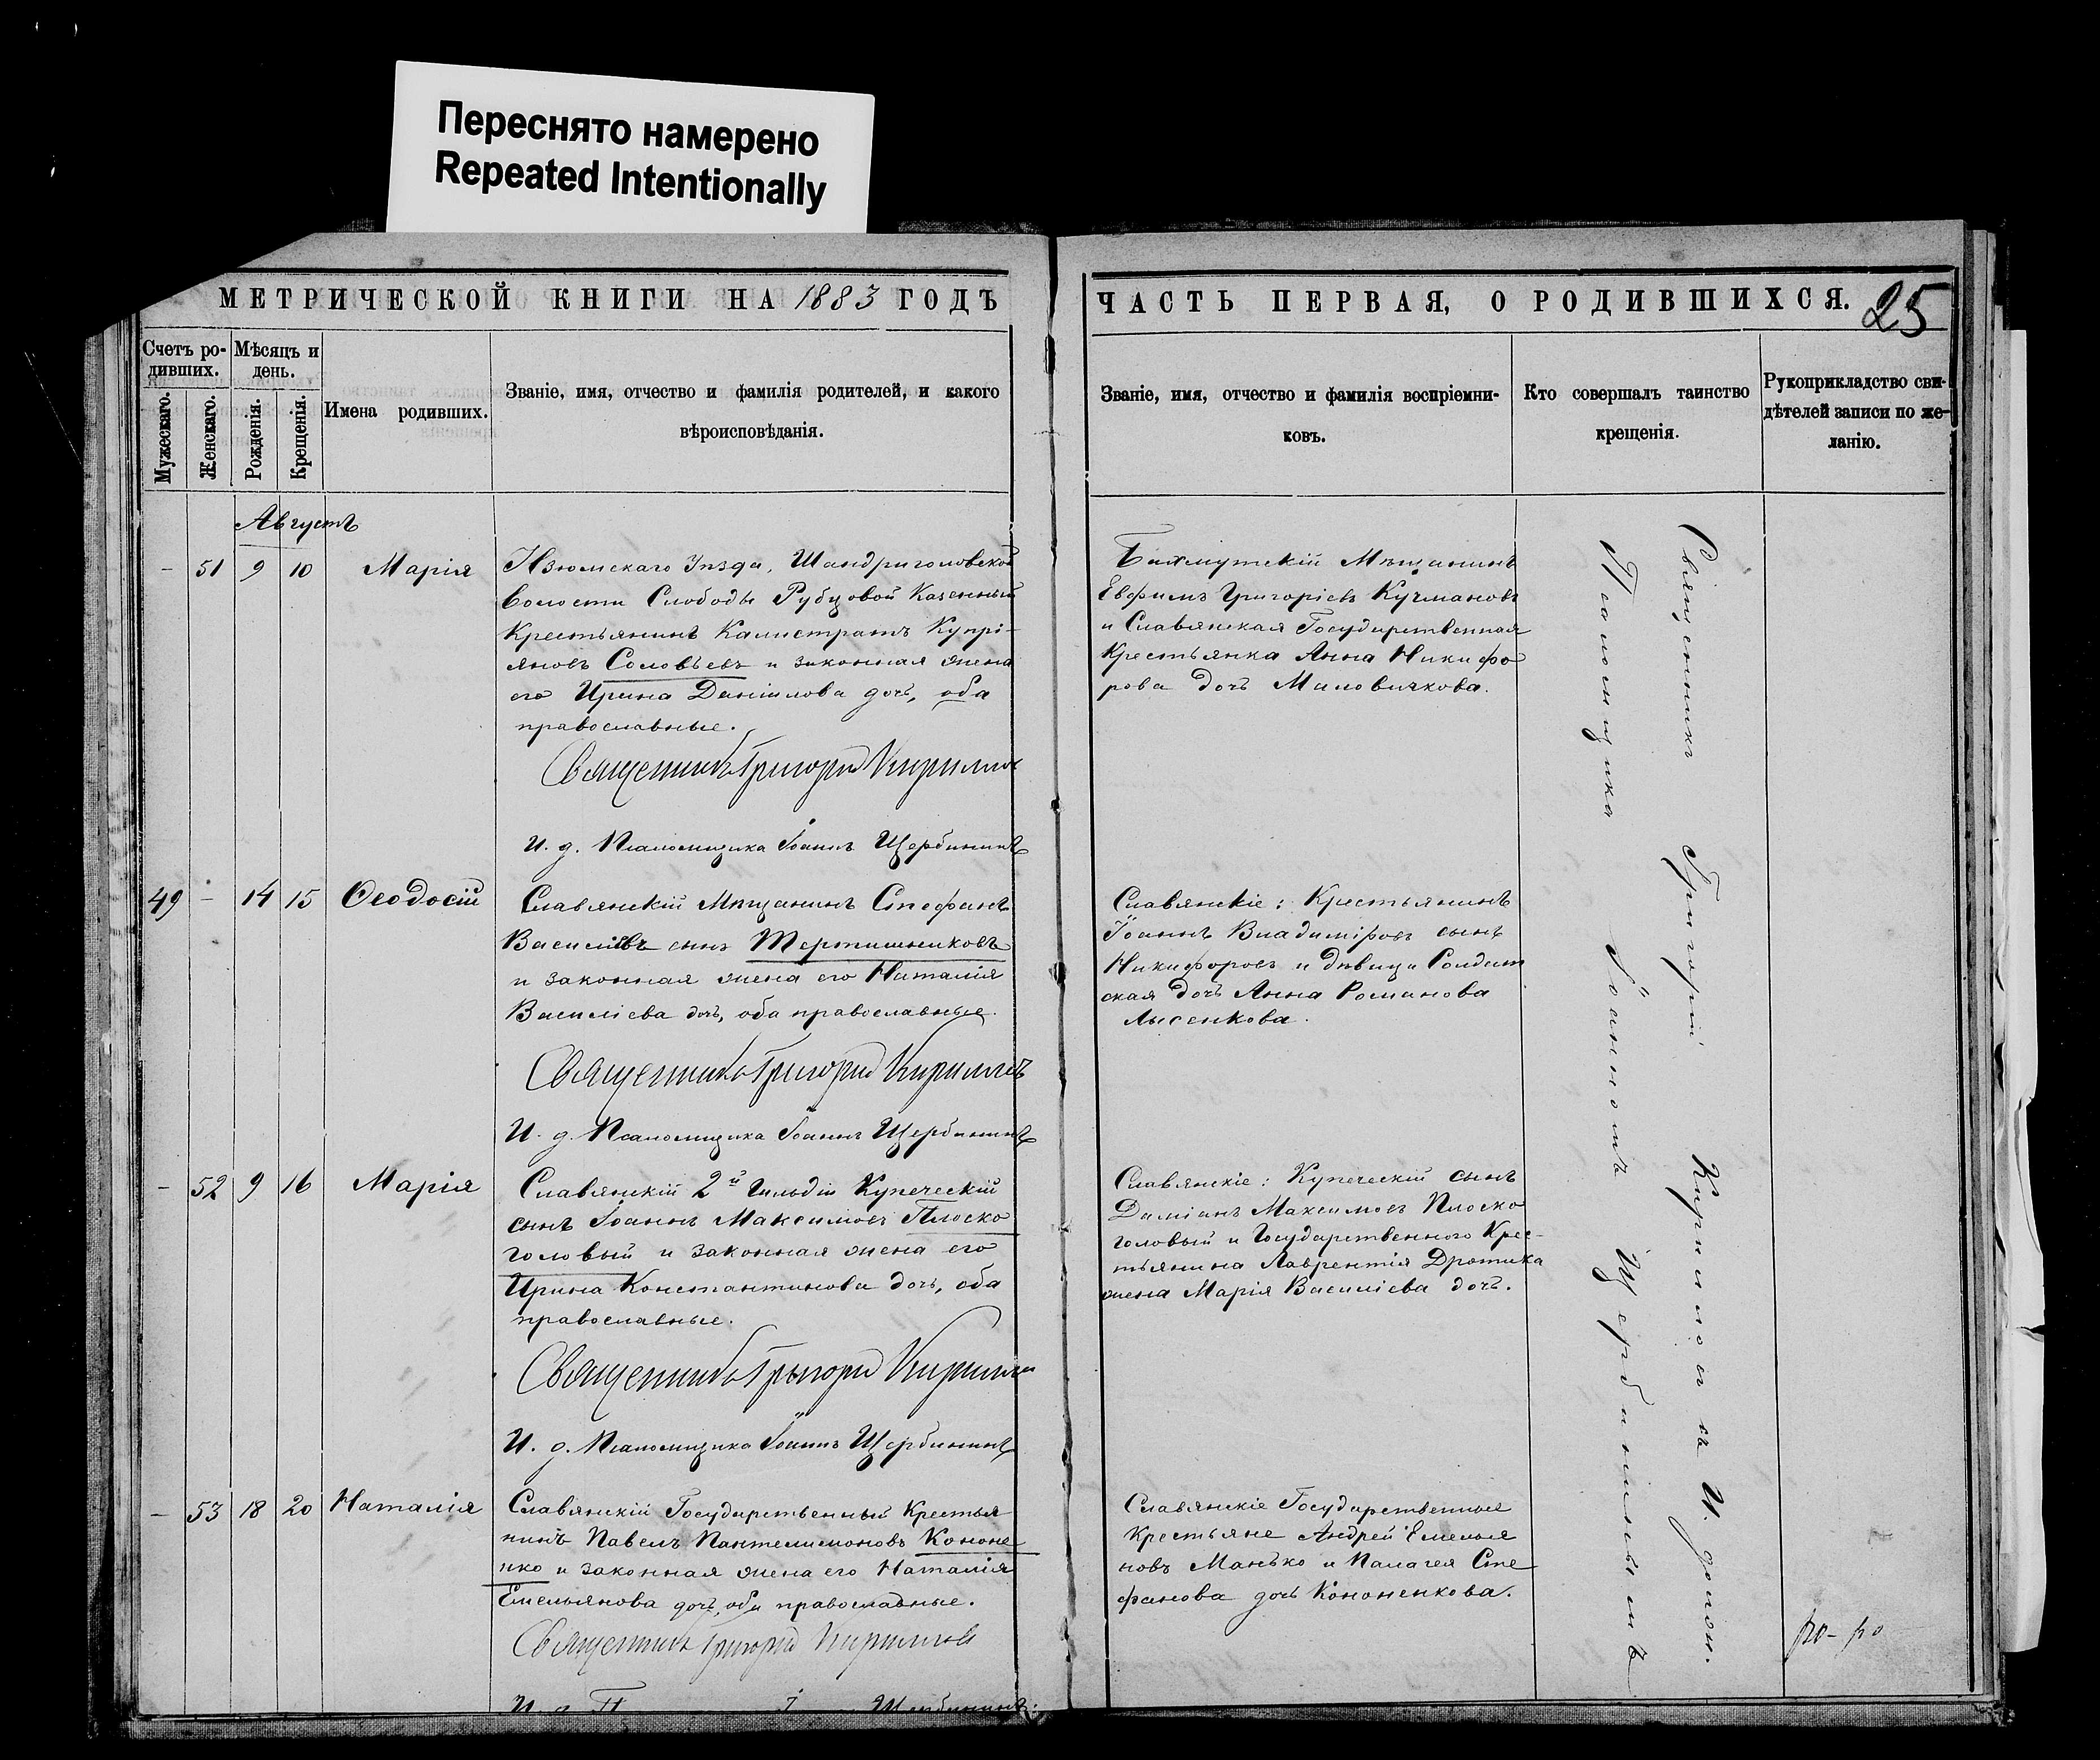 Переснято намерено
Repeated Intentionally
МЕТРИЧЕСКОЙ КНИГИ НА 1883 ГОДЪ
ЧАСТЬ ПЕРВАЯ, О РОДИВШИХСЯ. 25
Счетъ ро-
дивших.
Мужескаго.
Женскаго.
Мѣсяцъ и
день.
Рожденія.
Крещенія.
Имена родивших.
Званіе, имя, отчество и фамилія родителей, и какого
вѣроисповѣданія.
Званіе, имя, отчество и фамилія воспріемни-
ковъ.
Кто совершалъ таинство
крещенія.
Рукоприкладство сви-
дѣтелей записи по же-
ланію.
Августъ
- 51 9 10 Марія
Изюмскаго Уѣзда, Шандриголовской
волости Слободы Рубцовой Казенный
Крестьянинъ Калистратъ Купрі-
яновъ Соловьевъ и законная жена
его Ирина Даніилова дочь, оба
православные.
Священникъ Григорій Кирилловъ
И. д. Псаломщика Іоаннъ Щербининъ
Бахмутскій Мѣщанинъ
Евфимъ Григоріевъ Кучмановъ
и Славянская Государственная
Крестьянка Анна Никифо
рова дочь Маловичкова.
49 - 14 15 Ѳеодосій
Славянскій Мѣщанинъ Стефанъ
Василіевъ сынъ Тертишниковъ
и законная жена его Наталія
Василіева дочь, оба православные.
Священникъ Григорій Кирилловъ
И. д. Псаломщика Іоаннъ Щербининъ
Славянскіе: Крестьянинъ
Іоаннъ Владиміровъ сынъ
Никифоровъ и дѣвица Солдат
ская дочь Анна Романова
Лысенкова.
- 52 9 16 Марія
Славянскій 2й Гильдіи Купеческій
сынъ Іоаннъ Максимовъ Плоско
головый и законная жена его
Ирина Константинова дочь, оба
православные.
Священникъ Григорій Кирилловъ
И. д. Псаломщика Іоаннъ Щербининъ
Славянскіе: Купеческій сынъ
Даміанъ Максимовъ Плоско
головый и Государственнаго Крес-
тьянина Лаврентія Дротика
жена Марія Василіева дочь.
- 53 18 20 Наталія
Славянскій Государственный Крестья
нинъ Павелъ Пантелимоновъ Кононе
нко и законная жена его Наталія
Емельянова дочь, оба православные.
Священникъ Григорій Кирилловъ
И. д. П Щербининъ:
Славянскіе Государственные
Крестьяне Андрей Емелья
новъ Манько и Палагея Сте
фанова дочь Кононенкова.
Священникъ Григорій Кирилловъ съ И. должн.
Псаломщика Іоанномъ Щербининымъ